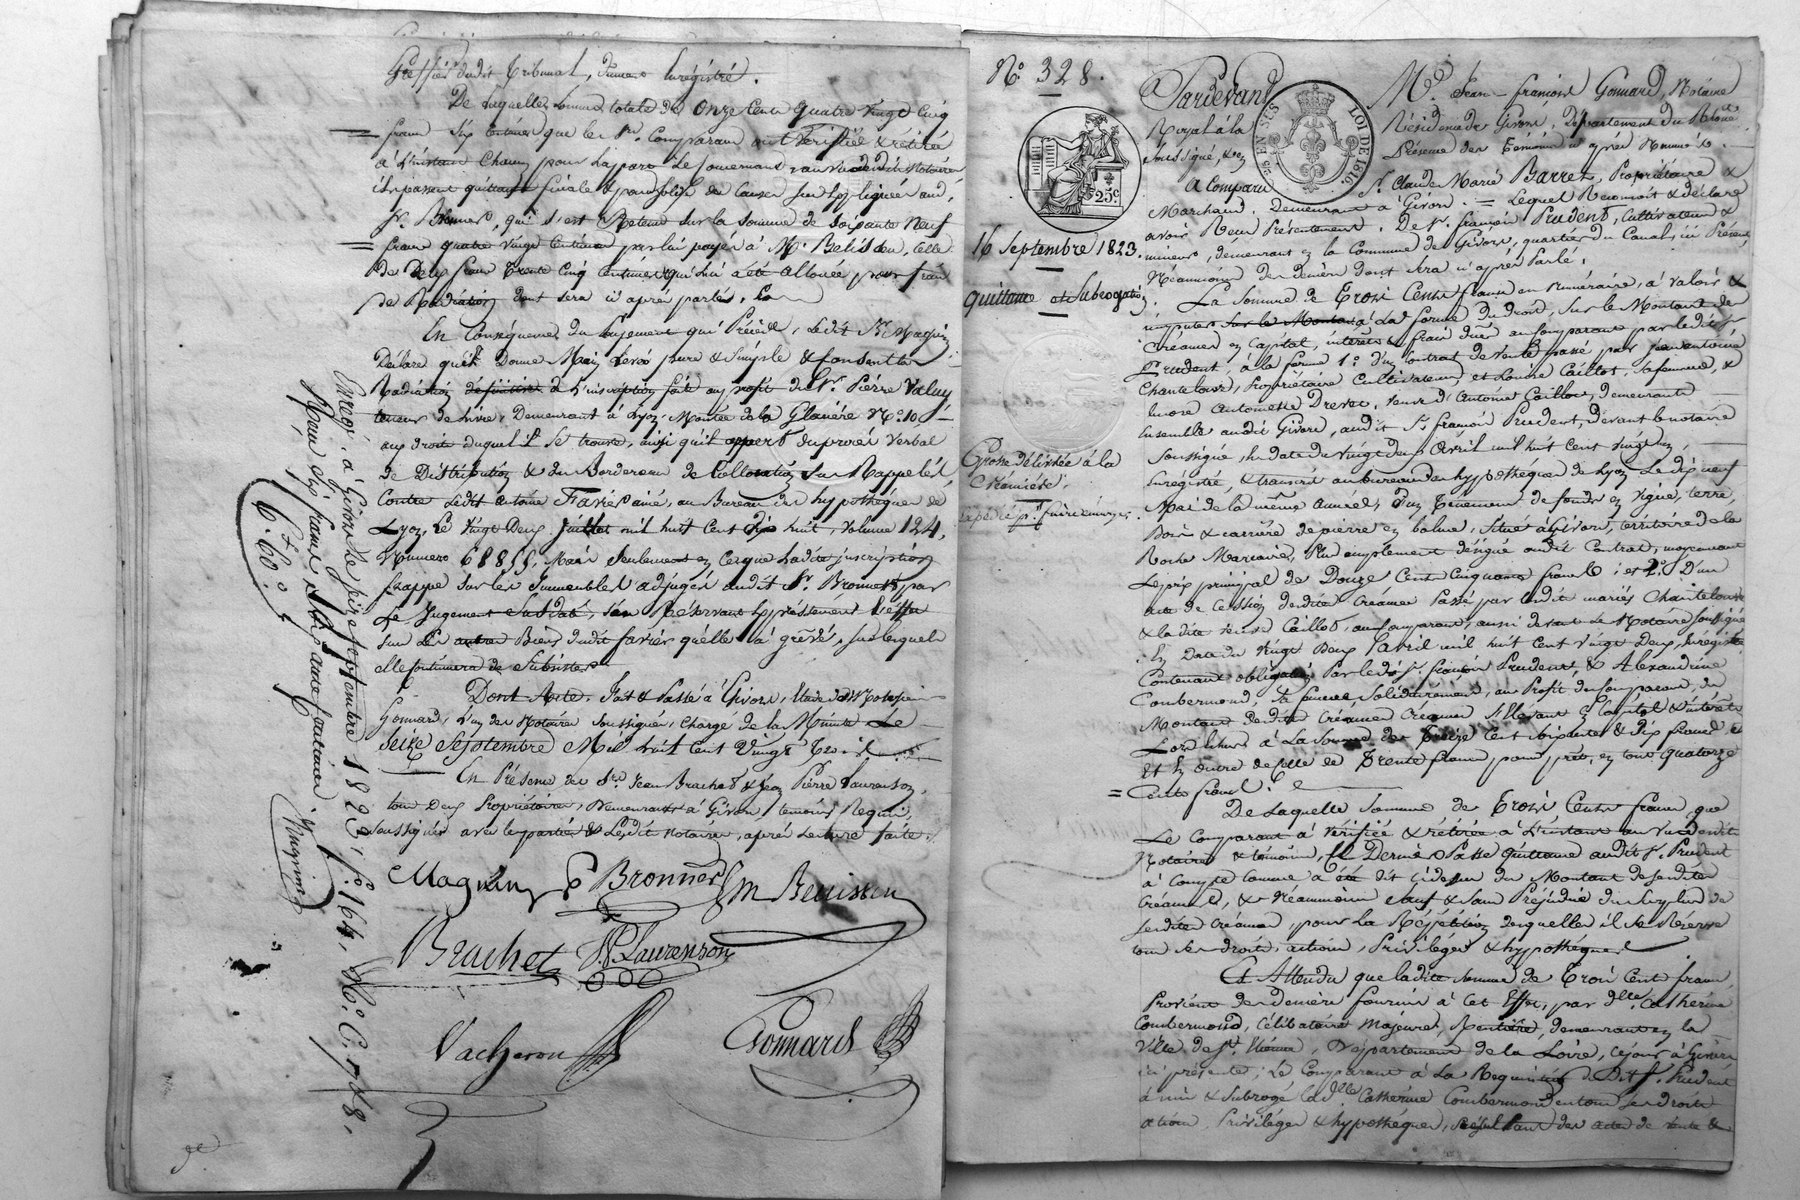 Greffier dudit Tribunal, dument Enregistré.
De laquelle Somme totale de Onze Cents quatre Vingt Cinq
francs Six Centimes que les Srs. Comparans ont Vérifiée & retirée
à L'instant Chacun pour La part Le Concernant
quittance finale &
Sr. Bronner, qui s'est Retenu sur la Somme de Soixante Neuf
francs quatre Vingt Centimes par lui payés à Me. Belisson, Celle
de Deux francs Trente Cinq Centimes qui lui a été Allouée pour frais
de Radiation dont sera ci après parlé.
En Conséquence du Jugement qui Précède, Ledit Sr. Magnin
Déclare qu'il Donne Main Levée pure & Simple & Consent la
Radiation définitive de L'inscription faite au profit du Sr. Pierre Valuy
teneur de Livres, Demeurant à Lyon, Montée de la Glacière No. 10,
aux droits duquel il Se trouve, ainsi qu'il appert du procès Verbal
de Distribution & du Bordereau de Collocation Sus Rappelés,
Contre Ledit Antoine Favier ainé, au Bureau des hypothèques de
Lyon, Le Vingt Deux Juillet mil huit Cent dix huit, Volume 124,
Numero 68855, Mais Seulement en Ce que Ladite inscription
frappe Sur les Immeubles adjugés audit Sr. Bronner, par
Le Jugement Susdaté, Se Réservant Expressément L'effet
Sur Les autres Biens dudit favier qu'elle a grevés, Sur lesquels
elle Continuera de Subsister.
Dont Acte. fait & Passé à Givors, Etude de Me. Notaire
Gonnard, L'un des Notaires Soussignés, Chargé de la Minute Le
Seize Septembre Mil huit Cent Vingt Trois.
En Présence des Srs. Jean Brachet & Jean Pierre Laurenson,
tous Deux Propriétaires, Demeurant à Givors temoins Requis,
Soussignés avec les parties & Ledit Notaire, après Lecture faite.
Magnin Bronner
Brachet JP Laurenson
Vacheron Gonnard
Enregé. à Givors Le Seize Septembre 1823, fo. 164, Ro. C. 7 & 8,
Reçu Six francs & Soixante Centimes.
6f. 60c.
No. 328.
25c
16 Septembre 1823.
quittance et Subrogation
Grosse délivrée à la
Créancière.
Pardevant Me. Jean-françois Gonnard, Notaire
Royal à la Résidence de Givors, Département du Rhône
Soussigné, & en Présence des Témoins ci après Nommés.
EN SUS LOI DE 1816
A Comparu Sr. Claude Marie Barret, Propriétaire &
Marchand, Demeurant à Givors. = Lequel Reconnoit & déclare
avoir Reçu Présentement, De Sr. françois Prudent, Cultivateur &
mineur, demeurant en la Commune de Givors, quartier du Canal, ici Présent,
des deniers dont Sera ci après Parlé,
La Somme de Trois Cents francs en numéraire, à valoir &
imputer à la forme du droit, Sur le Montant des
Créances en Capital, intérêts & frais dues au Comparant par ledit Sr.
Prudent, à la forme 1o. d'un Contrat de Vente passé par Jean antoine
Chantelouve, Propriétaire Cultivateur, et Louise Caillot, Sa femme, &
Antoinette Drevet, Veuve d'Antoine Caillot, demeurants
Ensemble audit Givors, audit Sr. françois Prudent, devant le notaire
Soussigné, en date du Vingt deux Avril mil huit Cent Vingt deux
Enregistré, & transcrit au bureau des hypothèques de Lyon Le dix neuf
Mai de la même année, d'un Tènement de fonds en Vigne, terre,
Bois & carrière de pierre en balme, Situé à Givors, territoire de la
Roche Marcaire, Plus amplement désigné audit Contrat, moyennant
Le prix principal de Douze Cents Cinquante francs; et 2o. D'un
acte de Cession desdites Créances Passé par lesdits mariés Chantelouve
& la dite veuve Caillot, au Comparant, aussi devant Le Notaire Soussigné
En Date du Vingt Deux avril mil huit Cent Vingt Deux, Enregistré
Contenant obligation Par ledit Sr. françois Prudent, & Alexandrine
Combermond, Sa femme, Solidairement, au Profit du Comparant, du
Montant desdites Créances S'élevant en Capital & intérêts
Lors échus à La Somme de Treize Cent Soixante & Dix francs, &
Et En Outre de Celle de Trente francs pour prêt, en tout quatorze
Cents francs.
De Laquelle Somme de Trois Cents francs que
Le Comparant a Vérifiée & retirée à L'instant au Vu desdits
Notaires & témoins, Ce Dernier Passe quittance audit Sr. Prudent
à Compte Comme a été dit Ci dessus du Montant desdites
Créances, & néanmoins Sauf & Sans Préjudice du Surplus de
Sesdites Créances, pour La Répétition desquelles il Se Réserve
tous Ses droits, actions, Privilèges & hypothèques.
Et Attendu que ladite Somme de Trois Cents francs
Provient des deniers fournis à Cet Effet, par dlle. Catherine
Combermond, Célibataire Majeure, Rentière, demeurant en la
Ville de St. Etienne, Département de la Loire, Ce jour à Givors
ici présente; Le Comparant à La Requisition Dudit Sr. Prudent
a mis & Subrogé ladlle Catherine Combermond en tous Ses droits
actions, Privilèges & hypothèques, Résultant des actes de Vente &